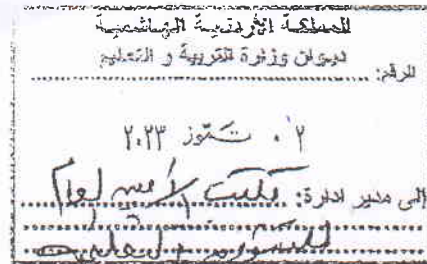 المملكة الأردنية الهاشمية
ديوان وزارة التربية و التعليم
الرقم:
٢٠ تموز ٢٠٢٣
إلى مدير ادارة: مكتب الأمين العام